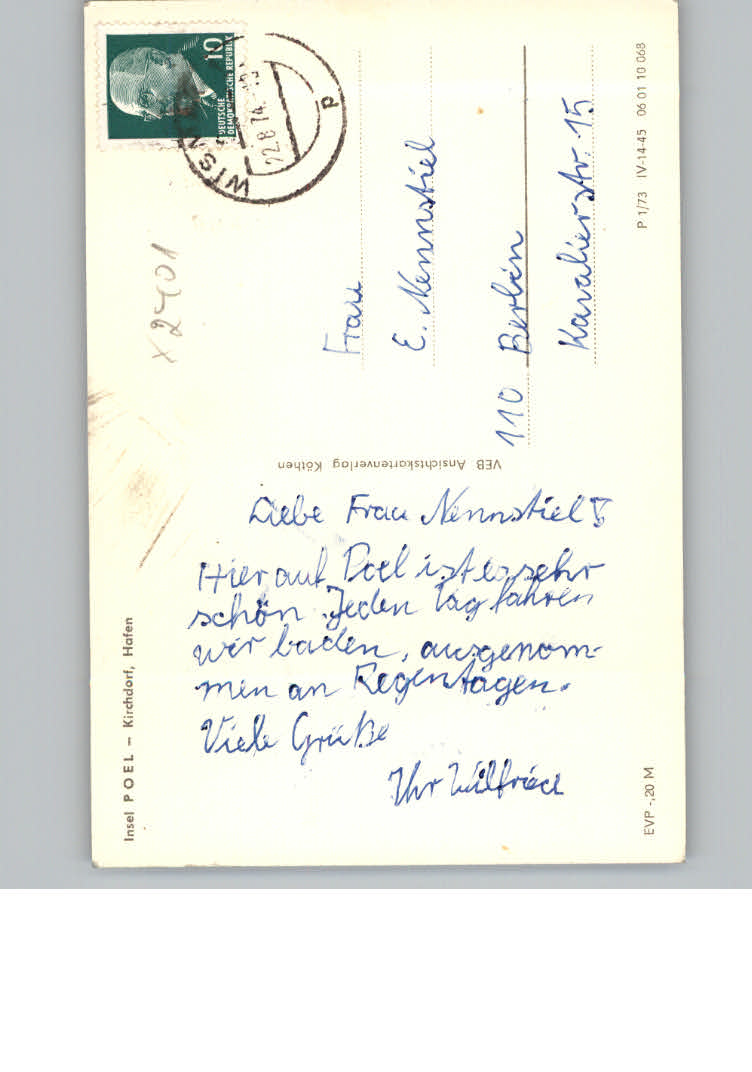 10
DEUTSCHE
DEMOKRATISCHE REPUBLIK
WISMAR
22.8.74
p
x 2401
Frau
E. Nennstiel
110 Berlin
Kavalierstr. 15
P 1/73 IV-14-45 06 01 10 068
VEB Ansichtskartenverlag Köthen
Liebe Frau Nennstiel!
Hier auf Poel ist es sehr
schön. Jeden Tag fahren
wir baden, ausgenom-
men an Regentagen.
Viele Grüße
Ihr Wilfried
Insel POEL – Kirchdorf, Hafen
EVP -,20 M